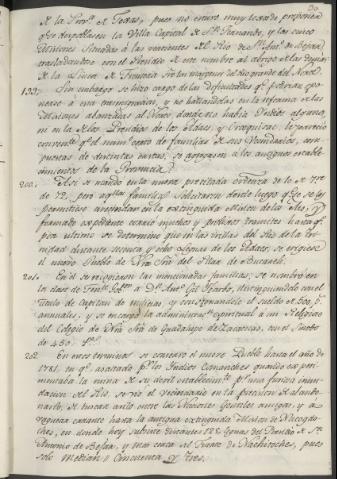 de la Prov.ª de Texas, pues no estuvo muy lexos de proponer
se despoblasen la Villa Capital de S.n Fernando, y las cinco
Misiones situadas à las vertientes del Rio de S.n Ant.o de Bejar,
trasladandose con el Presidio de este nombre al abrigo de los demas
de la Linea de Frontera en las margenes del Rio grande del Norte.
199. Sin embargo se hizo cargo de las dificultades q.e podrian opo-
nerse à esta transmigracion, y no hallandolas en la reforma de las
Misiones abanzadas al Norte donde no havia Indio alguno,
ni en la de los Presidios de los Adaes, y Orcoquizac, le parecio
conveniente q.e el num.o corto de familias de sus Vecindarios, com-
puestas de distintas castas, se agregasen à los antiguos estable-
cimientos de la Provincia.
200. Asi se mandó en la nueva precitada ordenza de 10 de 7re
de 72, pero aq.llas familias solicitaron desde luego q.e se les
permitiese arrancharse en la extinguida Mision de los Aes, y
formado expediente corrio muchos y prolixos tramites hasta q.e
por ultimo se determinó que en las orillas del Rio de la Tri-
nidad distante sesenta y ocho Leguas de los Adaes, se erigiese
el nuevo Pueblo de Ntra Srà del Pilar de Bucareli.
201. En él se recogieron las mencionadas familias; se nombró en
la clase de Then.te Gob.or à D.n Ant.o Gil Ybarbo, distinguiendolo con el
titulo de Capitan de milicias, y consignandole el sueldo de 500 p.s
annuales, y se encargó la administrac.on espiritual à un Religioso
del Colegio de Ntra Srà de Guadalupe de Zacatecas, con el Sinodo
de 450 p.s
202. En esos terminos se conservó el nuevo Pueblo hasta el año de
1781, en q.e acosado p.r los Indios Comanches quando ex peri-
mentaba la ruina de su debil establecim.to p.r una furiosa inun-
dacion del Rio, se vio el vecindario en la precision de abando-
narlo, de tomar asilo entre las Naciones Gentiles amigas, y de
vaguear errante hasta la antigua extinguida Mision de Nacogdo-
ches, en donde hoy subsiste distantes 122 Leguas del Presidio de S.n
Antonio de Bejar, y mas cerca del Fuerte de Nachitoches, pues
solo median Cincuenta y tres.